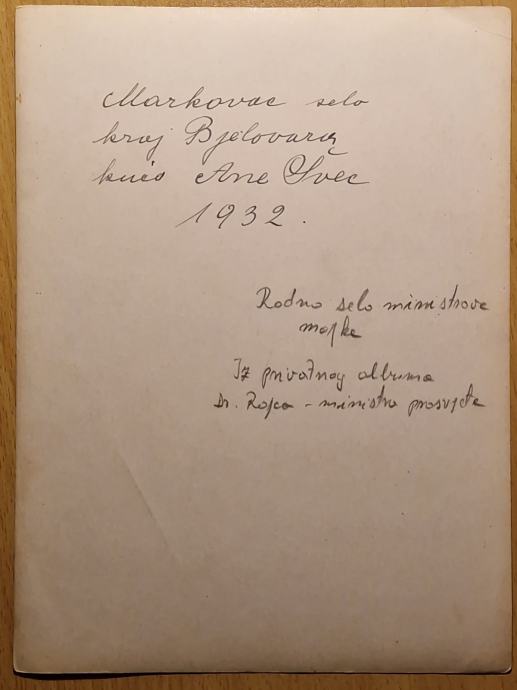 Markovac selo
kraj Bjelovara
kuća Ane Švec
1932.
Rodno selo ministrove
majke
Iz privatnog albuma
Dr. Rajca - ministra prosvjete